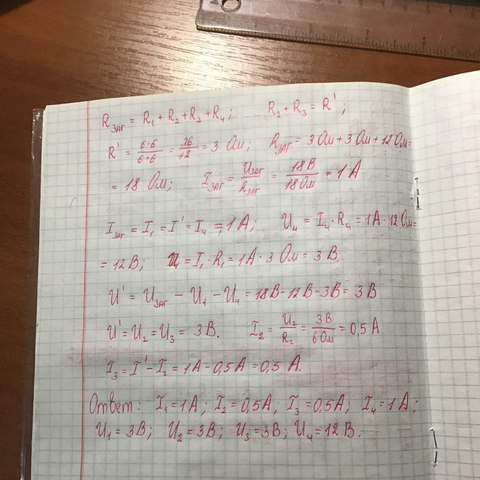 Rзаг = R₁ + R₂ + R₃ + R₄; R₂ + R₃ = R';
R' = 6·6/6+6 = 36/12 = 3 Ом, Rзаг = 3 Ом + 3 Ом + 12 Ом =
= 18 Ом; Iзаг = Uзаг/Rзаг = 18В/18Ом = 1 А
Iзаг = I₁ = I' = I₄ = 1 А; U₄ = I₄·R₄ = 1А·12 Ом =
= 12 В; U₁ = I₁·R₁ = 1А·3 Ом = 3 В.
U' = Uзаг - U₁ - U₄ = 18В-12В-3В = 3В
U' = U₂ = U₃ = 3В. I₂ = U₂/R₂ = 3В/6Ом = 0,5 А
I₃ = I' - I₂ = 1А - 0,5А = 0,5 А.
Ответ: I₁ = 1А; I₂ = 0,5А; I₃ = 0,5А; I₄ = 1А;
U₁ = 3В; U₂ = 3В; U₃ = 3В; U₄ = 12 В.